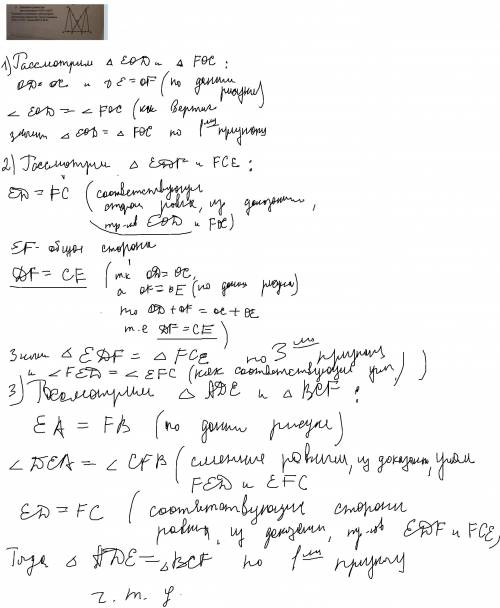 1) Рассмотрим △ EOD и △ FOC :
OD = OC и OE = OF (по данным рисунка)
∠ EOD = ∠ FOC (как вертик
значит △ EOD = △ FOC по 1 му признаку
2) Рассмотрим △ EDF и FCE :
ED = FC (соответствующие
стороны равны, из доказанных,
тр-ков EOD и FOC)
EF - общая сторона
DF = CE (тк OD = OC,
а OF = OE (по данным рисунка)
то OD + OF = OC + OE
т.е DF = CE)
Значит △ EDF = △ FCE по 3 му признаку
и ∠ FED = ∠ EFC (как соответствующие углы)
3) Рассмотрим △ ADE и △ BCF :
EA = FB (по данным рисунка)
∠ DEA = ∠ CFB (смежные равным, из доказан, углам
FED и EFC
ED = FC (соответствующие стороны
равных, из доказанных, тр-ков EDF и FCE)
Тогда △ ADE = △ BCF по 1 му признаку
ч. т. д.